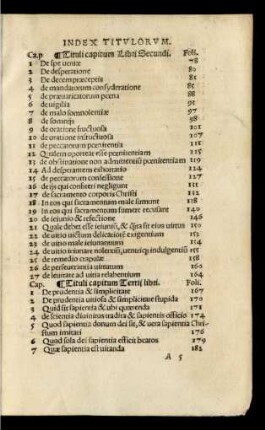 INDEX TITVLORVM.
Cap ¶Tituli capitum Libri Secundi. Foli.
1 De spe 78
2 De desperatione 80
3 De decem præceptis 81
4 de mandatorum consyderatione 85
5 de præuaricatorum pœna 88
6 de uigilia 91
7 de malo somnolentiæ 97
8 de somnijs 98
9 de oratione fructuosa 101
10 de oratione infructuosa 107
11 de peccannum pœnitentia 111
12 Qualem oporteat esse pœnitentiam 115
13 de obstinatione non admittentis pœnitentiam 119
14 Ad desperantem exhortatio 124
15 de peccatorum confessione 127
16 de ijs qui confiteri negligunt 131
17 de sacramento corporis Christi 132
18 In eos qui sacramentum male sumunt 138
19 In eos qui sacramentum sumere recusant 140
20 de ieiunio & refectione 146
21 Quale debet esse ieiunium, & quã sit eius uirtus 150
22 de uitio uictum delicatiorē exigentium 152
23 de uitio male ieiunantium 154
24 de uitio ieiunare nolentiũ, uentriq; indulgentiũ 155
25 de remedio crapulæ 158
26 de perseuerantia uirtutum 160
27 de leuitate ad uitia relabentium 164
Cap. ¶Tituli capitum Tertij libri. Foli.
1 De prudentia & simplicitate 167
2 De prudentia uitiosa & simplicitate stupida 170
3 Quid sit sapientia & ubi quærenda 171
4 de scientia diuinitus tradita & sapientis officio 174
5 Quod sapientia donum dei sit, & uera sapientia Christum
imitari 176
6 Quod sola dei sapientia efficit beatos 179
7 Quæ sapientia est uitanda 182
A 5